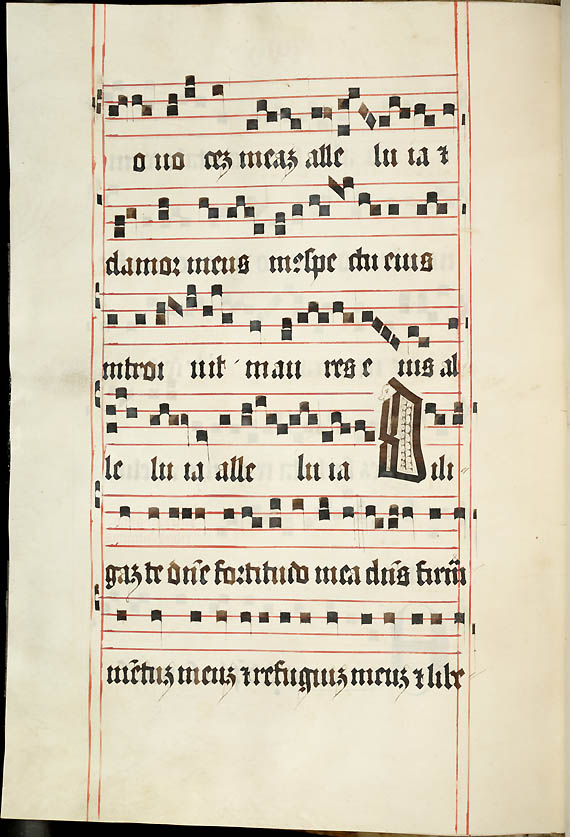 o uo cez meaz alle lu ia ⁊
clamor meus in cōspe ctu eius
introi uit in au res e ius al
le lu ia alle lu ia D ili
gaz te dn̄e fortitudo mea dn̄s firm̄
mētuz meuz ⁊ refugiuz meuz ⁊ libe